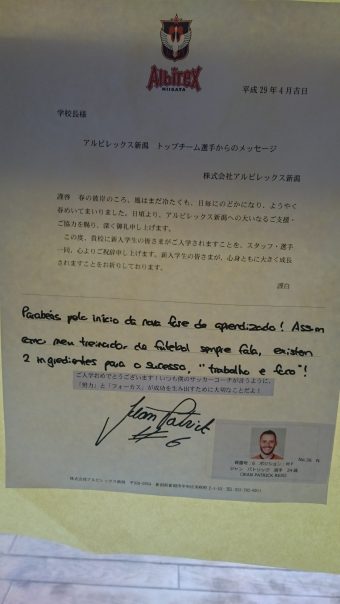 Albirex
NIIGATA
平成29年4月吉日
学校長様
アルビレックス新潟　トップチーム選手からのメッセージ
株式会社アルビレックス新潟
謹啓　春の彼岸のころ、風はまだ冷たくも、日毎にのどかになり、ようやく
春めいてまいりました。日頃より、アルビレックス新潟への大いなるご支援・
ご協力を賜り、深く御礼申し上げます。
この度、貴校に新入学生の皆さまがご入学されますことを、スタッフ・選手
一同、心よりご祝辞申し上げます。新入学生の皆さまが、心身ともに大きく成長
されますことをお祈りしております。
謹白
Parabéns pelo início da nova fase de aprendizado! Assim
como meu treinador de futebol sempre fala, existem
2 ingredientes para o sucesso, "trabalho e foco"!
ご入学おめでとうございます！いつも僕のサッカーコーチが言うように、
「努力」と「フォーカス」が成功を生み出すために大切なことだよ！
Jean Patrick
#6
背番号 6 ポジション：MF
ジャン パトリック 選手 24歳
株式会社アルビレックス新潟